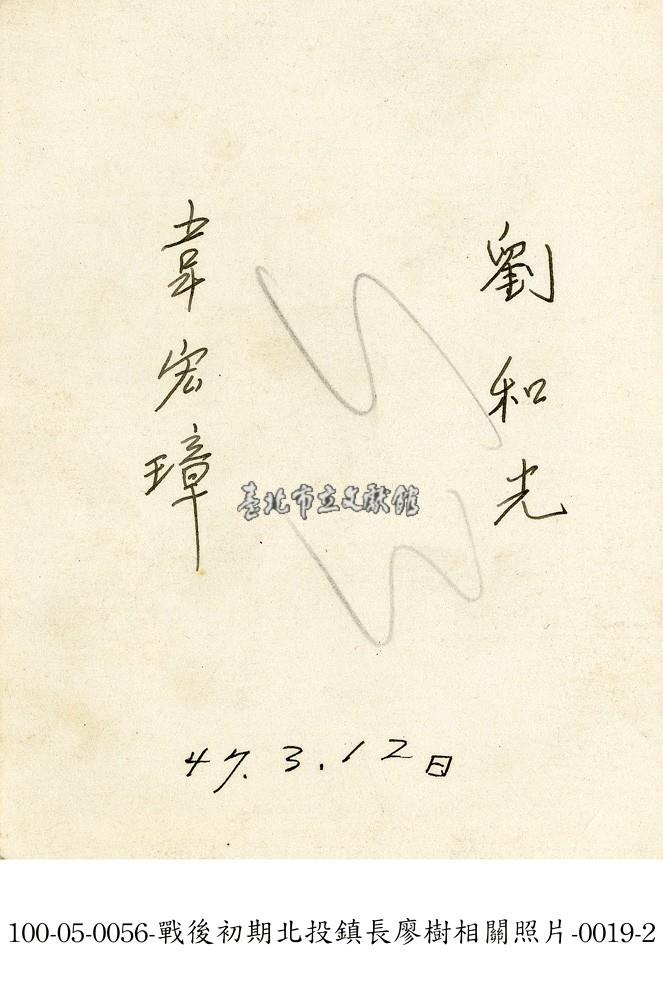 劉和光
韋宏璋
臺北市立文獻館
47.3.12日
100-05-0056-戰後初期北投鎮長廖樹相關照片-0019-2